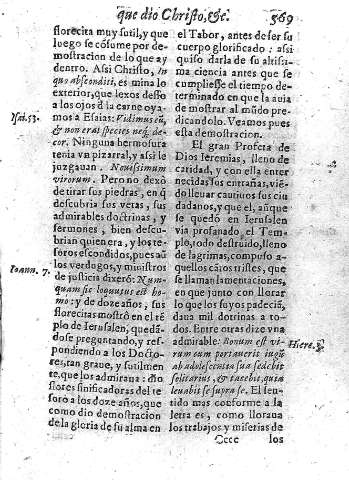 que dio Christo, &c. 569
florecita muy sutil, y que
luego se cõsume por de-
mostracion de lo que ay
dentro. Assi Christo, In
quo absconditi, es mina lo
exterior, que lexos desso
a los ojos d̃ la carne oya-
mos a Esaias: Vidimus eũ,
& non erat species neq; de-
cor. Ninguna hermosura
tenia vn pizarral, y assi le
juzgauan. Nouissimum
virorum. Pero no dexò
de tirar sus piedras, en q̃
descubria sus veras, sus
admirables doctrinas, y
sermones, bien descu-
brian quien era, y los te-
soros escondidos, pues aũ
los verdugos, y ministros
de justicia dixerõ: Nun-
quam sic loquutus est ho-
mo: y de doze años, sus
florecitas mostrò en el tẽ-
plo de Ierusalen, quedã-
dose preguntando, y res-
pondiendo a los Docto-
res, tan graue, y sutilmen-
te, que los admirana: dio
flores sinificadoras del te
soro a los doze años, que
como dio demostracion
de la gloria de su alma en
Isai. 53.
Ioann. 7.
el Tabor, antes de ser su
cuerpo glorificado: assi
quiso darla de su altissi-
ma ciencia antes que se
cumpliesse el tiempo de-
terminado en que la auia
de mostrar al mũdo pre-
dicandolo. Veamos pues
esta demostracion.
El gran Profeta de
Dios Ieremias, lleno de
caridad, y con ella enter
necidas sus entrañas, viẽ-
do lleuar cautiuos sus ciu
dadanos, y que el, aũque
se quedò en Ierusalen
via profanado el Tem-
plo, todo destruido, lleno
de lagrimas, compuso a-
quellos cãtos tristes, que
se llaman lamentaciones,
en que junto con llorar
lo que los suyos padeciã,
daua mil dotrinas a to-
dos. Entre otras dize vna
admirable: Bonum est vi-
rum cum portauerit iugũ
ab adolescentia sua sedebit
solitarius, & tacebit, quia
leuabit se supra se. El sen-
tido mas conforme a la
letra es, como lloraua
los trabajos y miserias de
Hiere.
Cccc los